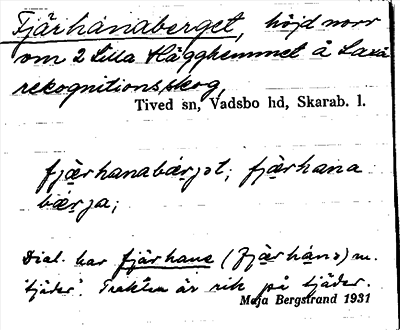 Fjärhanaberget, höjd norr
om 2 Lilla Hägghemmet å Laxå
rekognitionsskog,
Tived sn, Vadsbo hd, Skarab. l.
fjæ̣rhanabærjət; fjæ̣rhana
bærja;
Dial. har fjärhane (fjæ̣rhanə) m.
'tjäder'. Trakten är rik på tjäder.
Maja Bergstrand 1931